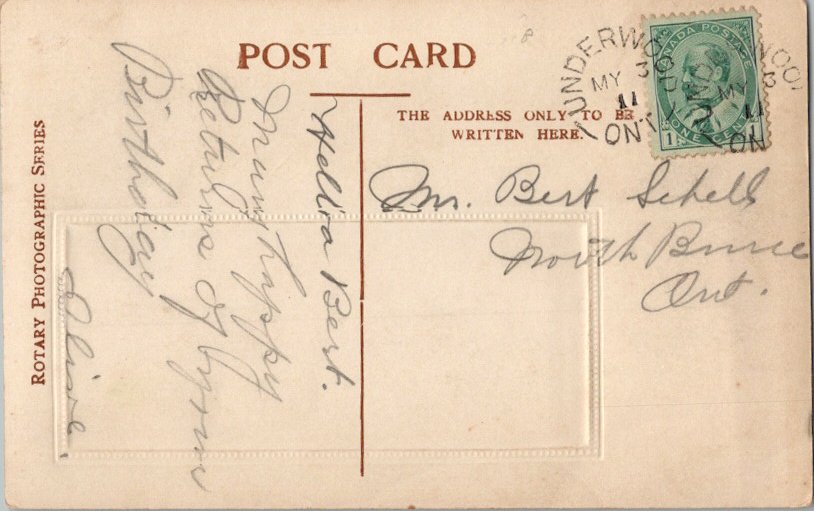 POST CARD
THE ADDRESS ONLY TO BE
WRITTEN HERE.
ROTARY PHOTOGRAPHIC SERIES
UNDERWOOD
MY 3
11
ONT
CANADA POSTAGE
1 ONE CENT
WOOD
MY 3
11
ON
Hello Bert.
Many happy
Returns of
Birthday
Olive.
Mr. Bert Schell
North Bruce
Ont.